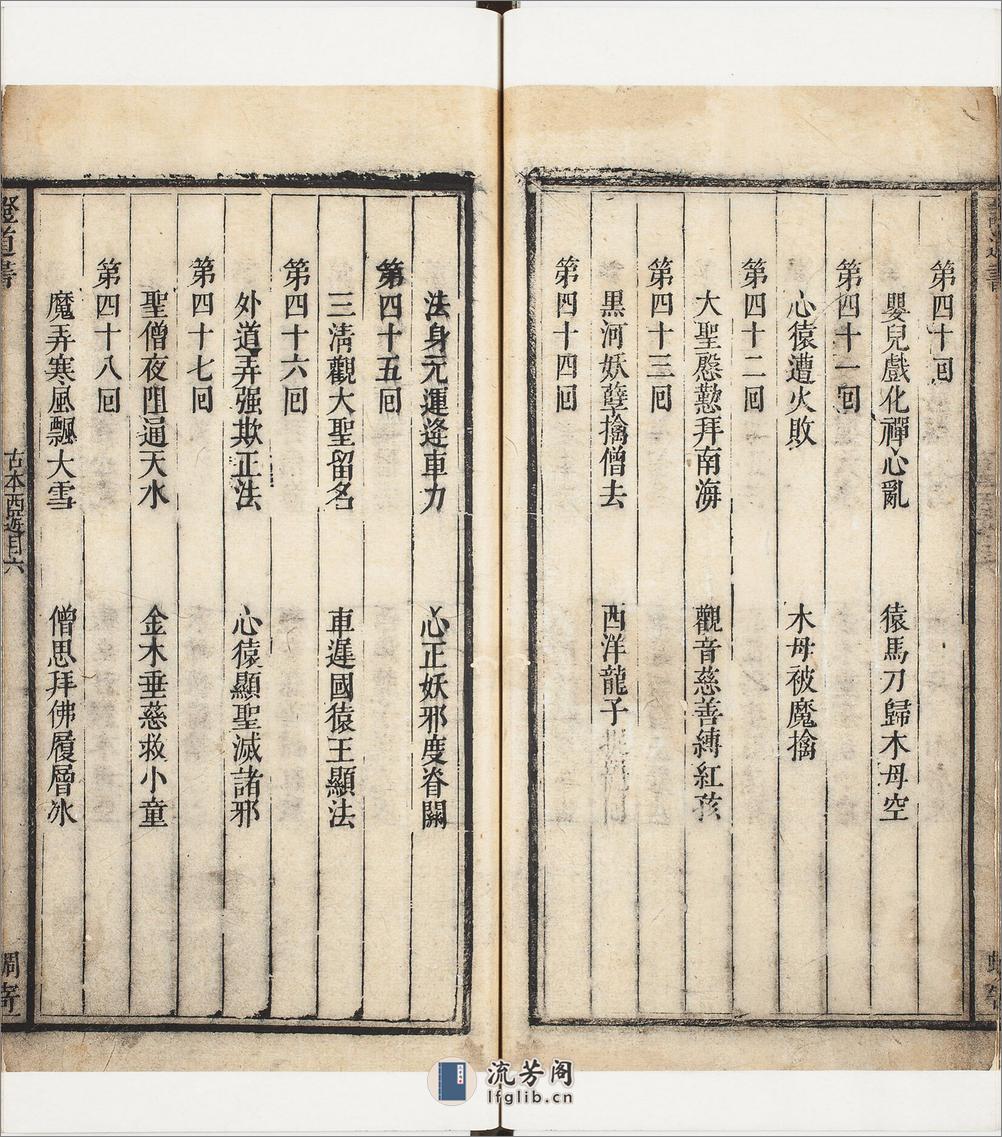 第四十回
嬰兒戲化禪心亂 猿馬刀歸木母空
第四十一回
心猿遭火敗 木母被魔擒
第四十二回
大聖慇懃拜南海 觀音慈善縛紅孩
第四十三回
黑河妖孽擒僧去 西洋龍子捉鼉回
第四十四回
法身元運逢車力 心正妖邪度脊關
第四十五回
三淸觀大聖留名 車遲國猿王顯法
第四十六回
外道弄强欺正法 心猿顯聖滅諸邪
第四十七回
聖僧夜阻通天水 金木垂慈救小童
第四十八回
魔弄寒風飄大雪 僧思拜佛履層冰
證道書
古本西遊目六
蜩寄
流芳阁
lfglib.cn